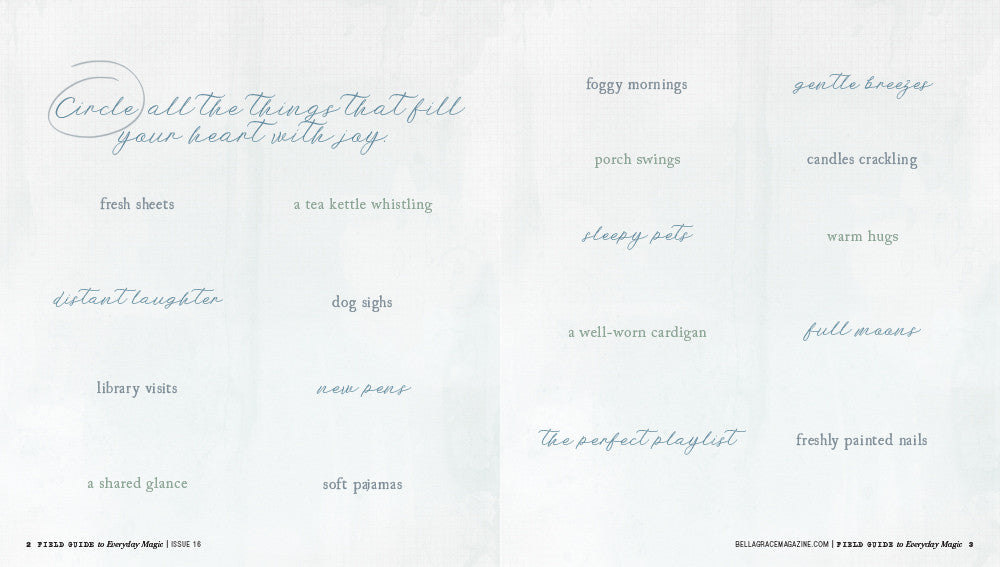 Circle all the things that fill
your heart with joy.
fresh sheets
a tea kettle whistling
distant laughter
dog sighs
library visits
new pens
a shared glance
soft pajamas
2 FIELD GUIDE to Everyday Magic | ISSUE 16
foggy mornings
gentle breezes
porch swings
candles crackling
sleepy pets
warm hugs
a well-worn cardigan
full moons
the perfect playlist
freshly painted nails
BELLAGRACEMAGAZINE.COM | FIELD GUIDE to Everyday Magic 3